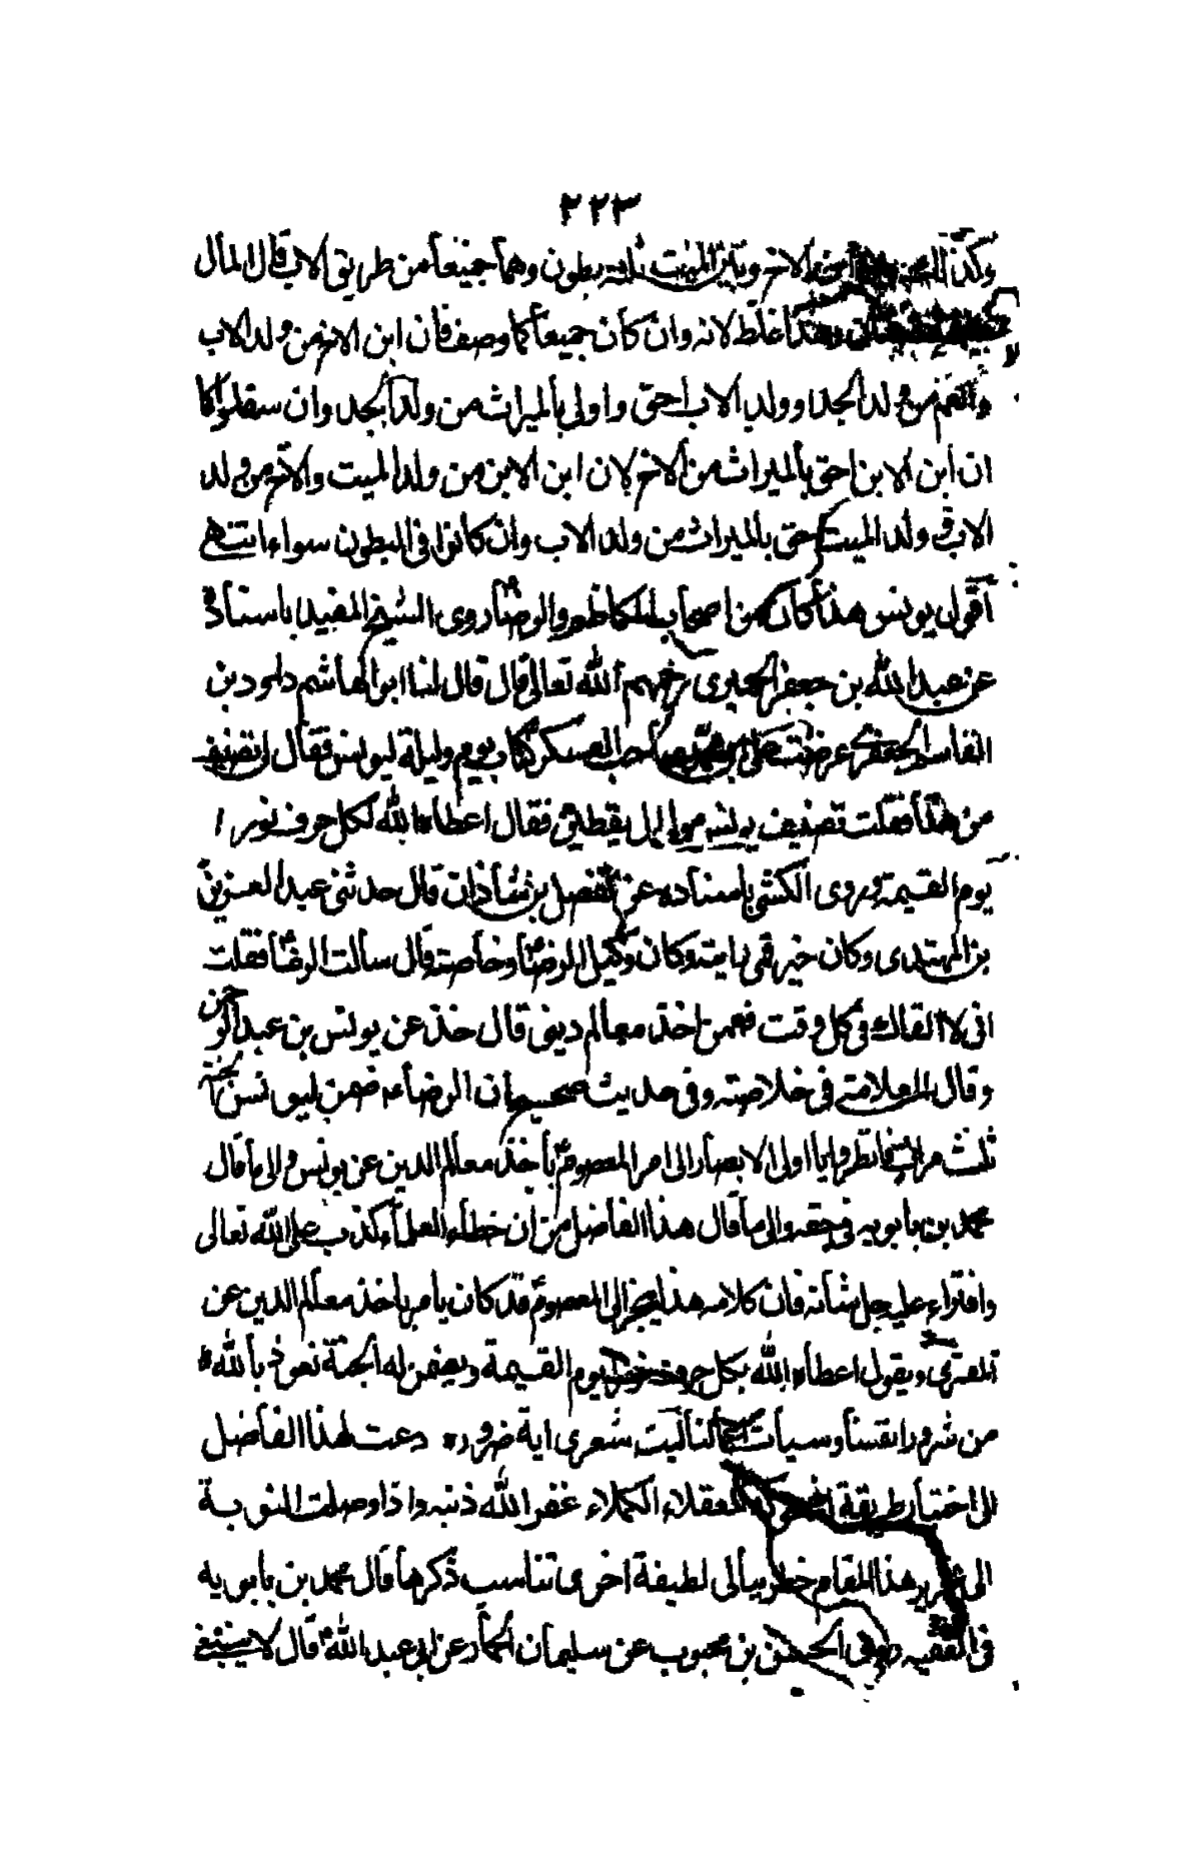 ٢٢٣
الاخ وبين الميت ثلثة بطون وهما جميعا من طريق الاب قال المال
وهذا غلط لانه وان كان جميعا كما وصف فان ابن الاخ من ولد الاب
والعم من ولد الجد وولد الاب احق واولى بالميراث من ولد الجد وان سفلوا كما
ان ابن الابن احق بالميراث من الاخ لان ابن الابن من ولد الميت والاخ من ولد
الاب وولد الميت احق بالميراث من ولد الاب وان كانوا فى البطون سواء انتهى
اقول يونس هذا كان من اصحاب الكاظم والرضا روى الشيخ المفيد باسناده
عن عبد الله بن جعفر الحميرى رحمهم الله تعالى قال قال لنا ابو الهاشم داود بن
القاسم الجعفرى عرضت على ابى محمد صاحب العسكر كتاب يوم وليلة ليونس فقال لى تصنيف
من هذا فقلت تصنيف يونس مولى ال يقطين فقال اعطاه الله لكل حرف نورا
يوم القيمة وروى الكشى باسناده عن الفضل بن شاذان قال حدثنى عبد العزيز
بن المهتدى وكان خير قمى رايته وكان وكيل الرضا وخاصته قال سالت الرضا فقلت
انى لا القاك فى كل وقت فعمن اخذ معالم دينى قال خذ عن يونس بن عبد الرحمن
وقال العلامة فى خلاصته وفى حديث صحيح ان الرضاء ضمن ليونس الجنة
ثلث مرات فانظروا يا اولى الابصار الى امر المعصوم باخذ معالم الدين عن يونس والى ما قال
محمد بن بابويه فى حقه والى ما قال هذا الفاضل من ان خطاء العلماء كذب على الله تعالى
وافتراء عليه جل شانه فان كلامه هذا الى المعصوم قد كان يامر باخذ معالم الدين عن
المفترى ويقول اعطاه الله بكل حرف نورا يوم القيمة ويضمن له الجنة نعوذ بالله
من شرور انفسنا وسيأت اعمالنا ليت شعرى اية ضرورة دعت لهذا الفاضل
الى اختيار طريقة العقلاء الكملاء غفر الله ذنبه واذا وصلت النوبة
الى تحرير هذا المقام خطر ببالى لطيفة اخرى تناسب ذكرها قال محمد بن بابويه
فى الفقيه روى الحسن بن محبوب عن سليمان الحمار عن ابى عبد الله قال لا ينبغى